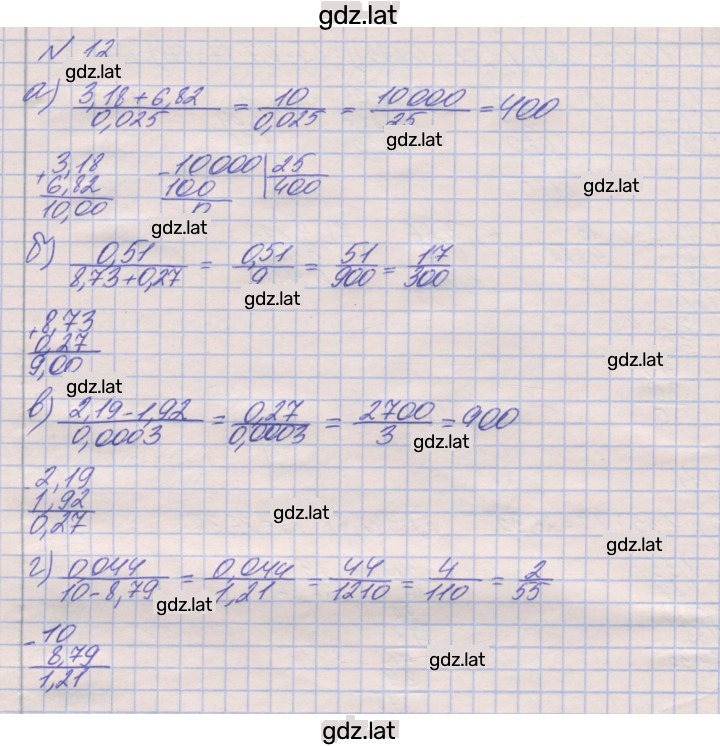 gdz.lat
N 12
gdz.lat
а) 3,18+6,82 / 0,025 = 10 / 0,025 = 10000 / 25 = 400
gdz.lat
+ 3,18
6,82
10,00
- 10000 | 25
100 | 400
0
gdz.lat
gdz.lat
б) 0,51 / 8,73+0,27 = 0,51 / 9 = 51 / 900 = 17 / 300
gdz.lat
+ 8,73
0,27
9,00
gdz.lat
gdz.lat
в) 2,19-1,92 / 0,0003 = 0,27 / 0,0003 = 2700 / 3 = 900
gdz.lat
- 2,19
1,92
0,27
gdz.lat
gdz.lat
г) 0,044 / 10-8,79 = 0,044 / 1,21 = 44 / 1210 = 4 / 110 = 2 / 55
gdz.lat
- 10
8,79
1,21
gdz.lat
gdz.lat